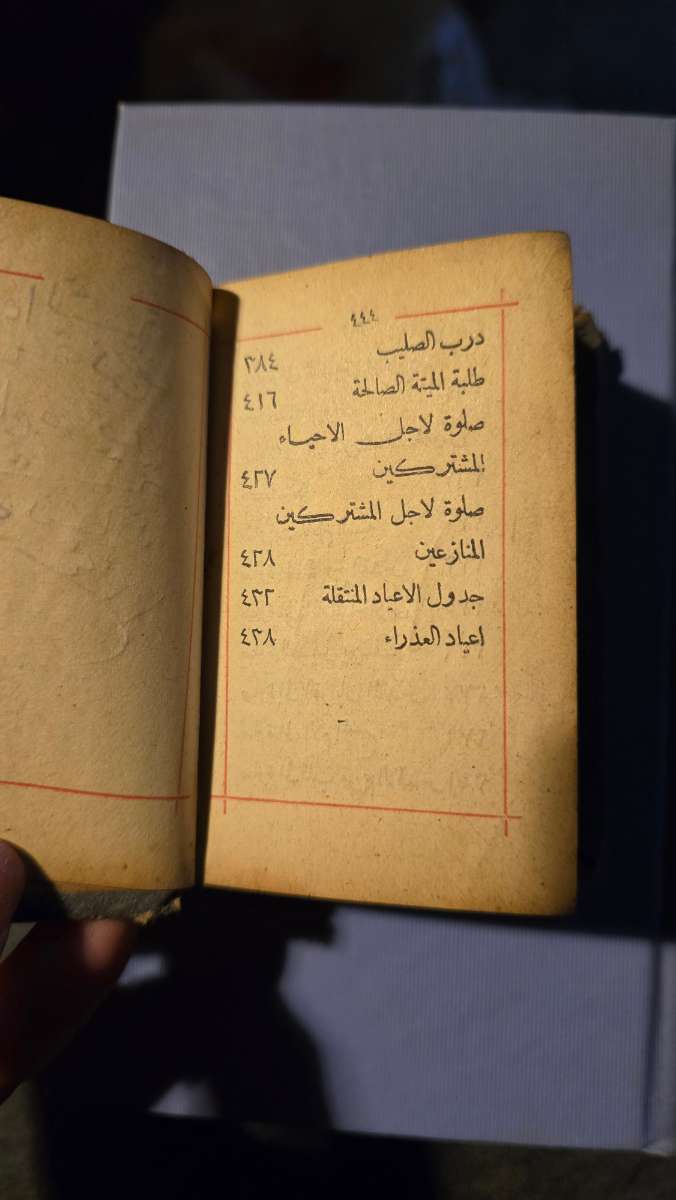 ٤٤٤
درب الصليب ٣٨٤
طلبة الميتة الصالحة ٤١٦
صلوة لاجل الاحياء
المشتركين ٤٢٧
صلوة لاجل المشتركين
المنازعين ٤٢٨
جدول الاعياد المنتقلة ٤٣٢
اعياد العذراء ٤٣٨